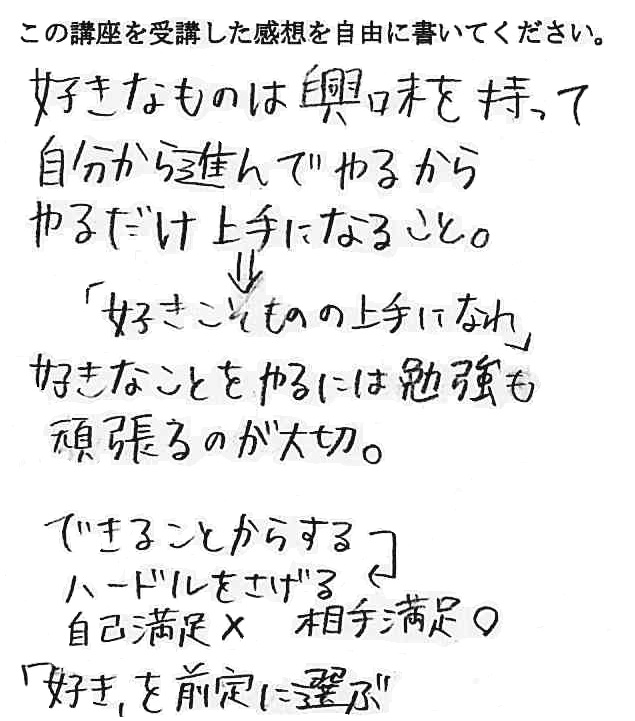 この講座を受講した感想を自由に書いてください。
好きなものは興味を持って
自分から進んでやるから
やるだけ上手になること。
⇓
「好きこそものの上手になれ」
好きなことをやるには勉強も
頑張るのが大切。
できることからする
ハードルをさげる
自己満足× 相手満足○
「好き」を前定に選ぶ